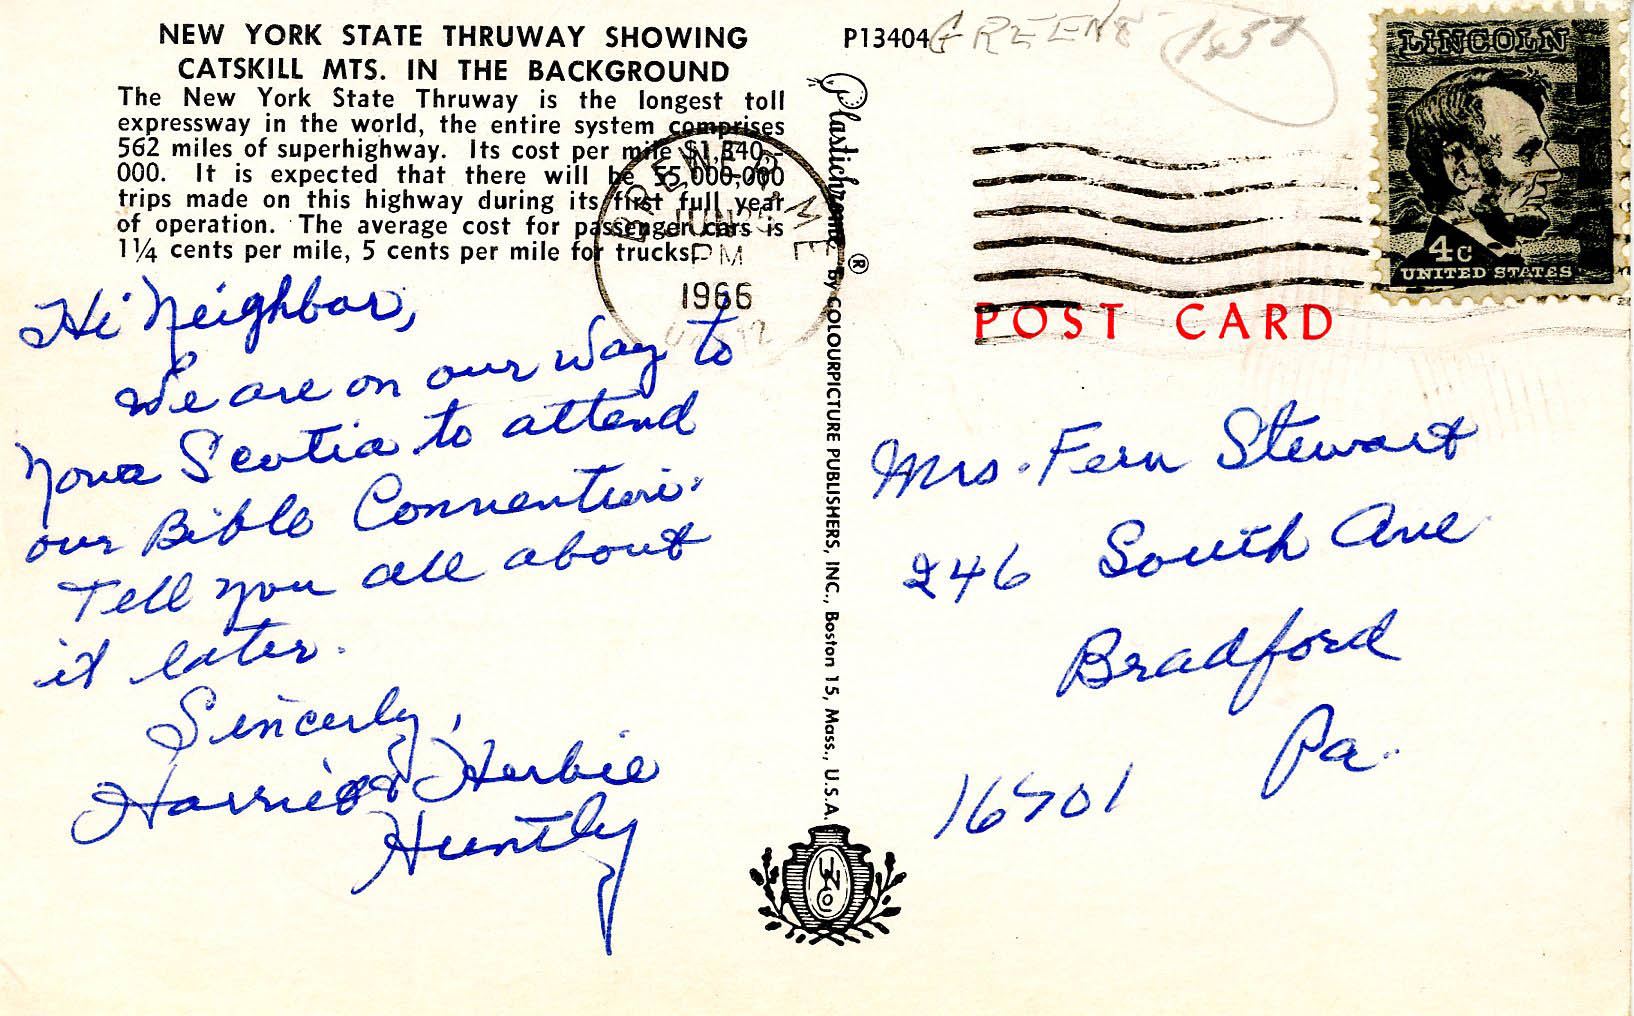 NEW YORK STATE THRUWAY SHOWING
CATSKILL MTS. IN THE BACKGROUND
The New York State Thruway is the longest toll
expressway in the world, the entire system comprises
562 miles of superhighway. Its cost per mile $1,340,-
000. It is expected that there will be 55,000,000
trips made on this highway during its first full year
of operation. The average cost for passenger cars is
1¼ cents per mile, 5 cents per mile for trucks.
Hi Neighbor,
We are on our way to
Nova Scotia to attend
our Bible Convention.
Tell you all about
it later.
Sincerly,
Harriet & Herbie
Huntly
BREWER, ME
JUN 25
PM
1966
Plastichrome ® by COLOURPICTURE PUBLISHERS, INC., Boston 15, Mass., U.S.A.
P13404
GREENE
LINCOLN
4c
UNITED STATES
POST CARD
Mrs. Fern Stewart
246 South Ave
Bradford
Pa.
16701